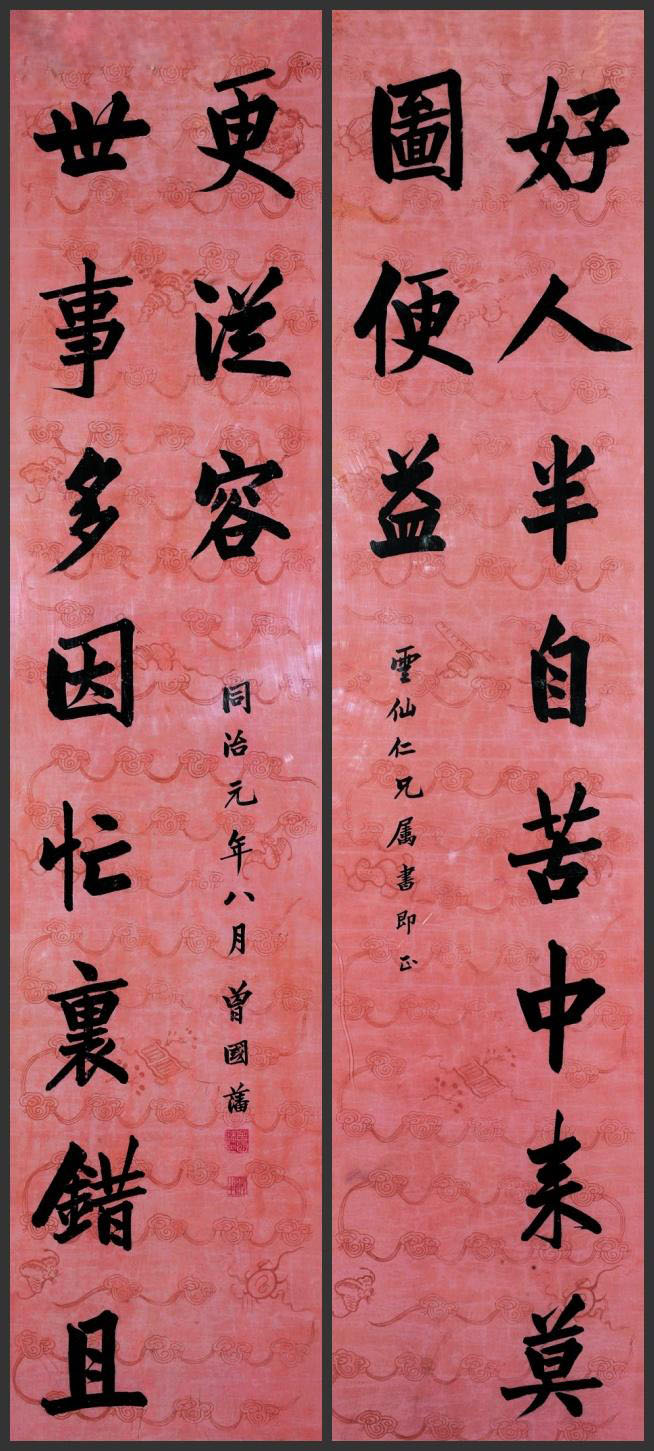 好人半自苦中来莫
圖便益
雲仙仁兄属書即正
世事多因忙裏錯且
更從容
同治元年八月曾國藩